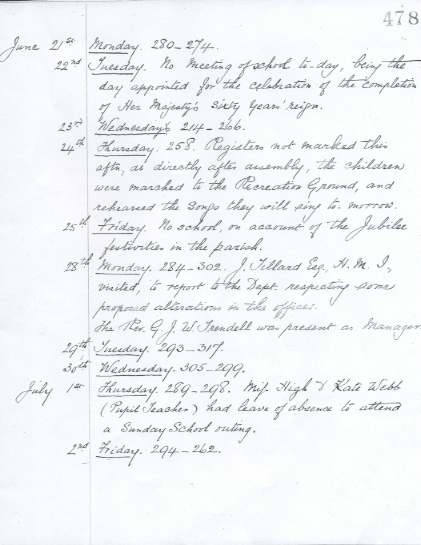 478
June 21st Monday. 280–274.
22nd Tuesday. No Meeting of school to-day, being the
day appointed for the celebration of the completion
of Her Majesty's sixty years' reign.
23rd Wednesday's 214–266.
24th Thursday. 258. Registers not marked this
aftn, as directly after assembly, the children
were marched to the Recreation Ground, and
rehearsed the songs they will sing to-morrow.
25th Friday. No school, on account of the Jubilee
festivities in the parish.
28th Monday. 284–302. J. Tillard Esq., H.M.I.,
visited, to report to the Dept. respecting some
proposed alterations in the offices.
The Rev. G. J. W. Trendell was present as Manager.
29th Tuesday. 293–317.
30th Wednesday. 305–299.
July 1st Thursday. 289–298. Miss High & Kate Webb
(Pupil Teacher) had leave of absence to attend
a Sunday School outing.
2nd Friday. 294–262.